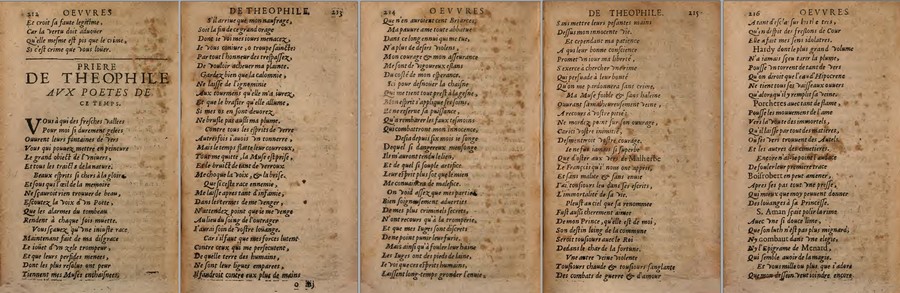 212 OEVVRES
Et croit sa faute legitime,
Car la vertu doit aduoüer
Qu'elle mesme est pis que le crime,
Si c'est crime que vous loüer.
PRIERE
DE THEOPHILE
AVX POETES DE
CE TEMPS.
Vous à qui des fresches vallees
Pour moy si durement gelees
Ouurent leurs fontaines de vers
Vous qui pouuez mettre en peinture
Le grand obiect de l'vniuers,
Et tous les traicts de la nature,
Beaux esprits si chers à la gloire,
Et sous qui l'œil de la memoire
Ne sçauroit rien trouuer de beau,
Escoutez la voix d'vn Poëte,
Que les alarmes du tombeau
Rendent à chaque fois muette.
Vous sçauez qu'vne iniuste race
Maintenant fait de ma disgrace
Le iouet d'vn zele trompeur,
Et que leurs perfides menees,
Dont les plus resolus ont peur
Tiennent mes Muses enchaisnees.
DE THEOPHILE. 213
S'il arriue que mon naufrage,
Soit la fin de ce grand orage
Dont ie voy mes iours menacez,
Ie vous coniure, ô troupe saincte
Par tout l'honneur des trespassez,
De vouloir acheuer ma plainte.
Gardez bien que la calomnie,
Ne laisse de l'ignominie
Aux tourmens qu'elle m'a iurez,
Et que le brasier qu'elle allume,
Si mes os en sont deuorez,
Ne brusle pas aussi ma plume.
Contre tous les esprits de verre
Autrefois i'auois vn tonnerre,
Mais le temps flatte leur courroux,
Tout me quitte, la Muse est prise,
Et le bruict de tant de verroux
Me choque la voix, & la brise.
Que si ceste race ennemie,
Me laisse apres tant d'infamie,
Dans les termes de me venger,
N'attendez point que ie me venge
Au lieu du soing de l'outrager
I'auray soin de vostre loüange.
Car s'il faut que mes forces luttent
Contre ceux qui me persecutent,
De quelle terre des humains,
Ne sont leur ligues emparees,
Il faudroit contre eux plus de mains
O iij
214 OEVVRES
Que n'en auroient cent Briarees,
Ma pauure ame toute abbatuë
Dans ce long ennuy qui me tuë,
N'a plus de desirs violens,
Mon courage & mon asseurance
Me sont de vigoureux eslans
Du costé de mon esperance.
Icy pour destourner la chaisne
Qui me tient tout prest à la gesne,
Mon esprit applique ses soins,
Et ne reserue sa puissance,
Qu'à rembarer les faux tesmoins
Qui combattront mon innocence.
Desia depuis six mois ie songe
De quel si dangereux mensonge
Ils m'auront tendu le lien,
Et de quel si souple artifice
Leur esprit plus fort que le mien
Me conuaincra de malefice.
On void assez que mes parties
Bien soigneusement aduerties
De mes plus criminels secrets,
N'ont recours qu'à la tromperie,
Et que mes Iuges sont discrets
De ne point punir leur furie.
Mais ainsi qu'à fouler leur haine
Les Iuges ont des pieds de laine,
Ie voy que ces esprits humains,
Laissent long temps gronder l'enuie,
DE THEOPHILE. 215
Sans mettre leurs pesantes mains
Dessus mon innocente vie.
Et cependant ma patience
A qui leur bonne conscience
Promet vn iour ma liberté,
S'exerce à chercher vne rime
Qui persuade à leur bonté
Qu'on me pardonnera sans crime.
Ma Muse foible & sans haleine
Ouurant sa malheureuse veine,
A recours à vostre pitié,
Ne mordez point sur son ouurage,
Car icy vostre inimitié,
Desmentiroit vostre courage.
Ie ne fus iamais si superbe
Que d'oster aux vers de Malherbe
Le François qu'il nous ont appris,
Et sans malice & sans enuie
I'ay tousiours leu dans ses escrits,
L'immortalité de sa vie.
Pleust au ciel que sa renommee
Fust aussi cherement aimee
De mon Prince, qu'elle est de moy,
Son destin loing de la commune
Seroit tousiours auec le Roy
Dedans le char de la fortune.
Vne autre veine violente
Tousiours chaude & tousiours sanglante
Des combats de guerre & d'amour
216 OEVVRES
A tant d'esclat sur les
Qu'en despit des frelons de Cour
Elle a fait mes sens idolatres.
Hardy dont le plus grand volume
N'a iamais sceu tarir la plume,
Pousse vn torrent de tant de vers
Qu'on diroit que l'eau d'Hipocrene
Ne tient tous ses vaisseaux ouuers
Qu'alors qu'il y remplit sa veine.
Porcheres auec tant de flame,
Pousse les mouuemens de l'ame
Vers la route des immortels,
Qu'il laisse par tout des matieres,
Où ses vers trouuent des Autels,
Et les autres des cimetieres.
Encore n'ay-ie point l'audace
De fouler leur premiere trace,
Boisrobert en peut amener,
Apres ses pas tout vne presse,
Qui mieux que moy peuuent donner
Des loüanges à sa Princesse.
S. Aman sçait polir la rime
Auec vne si douce lime,
Que son luth n'est pas plus mignard,
Ny Gombaut dans vne elegie,
Ny l'epigrame de Menard,
Qui semble auoir de la magie.
Et vous mille ou plus, que i'adore
Que mon dessein veut ioindre encore,